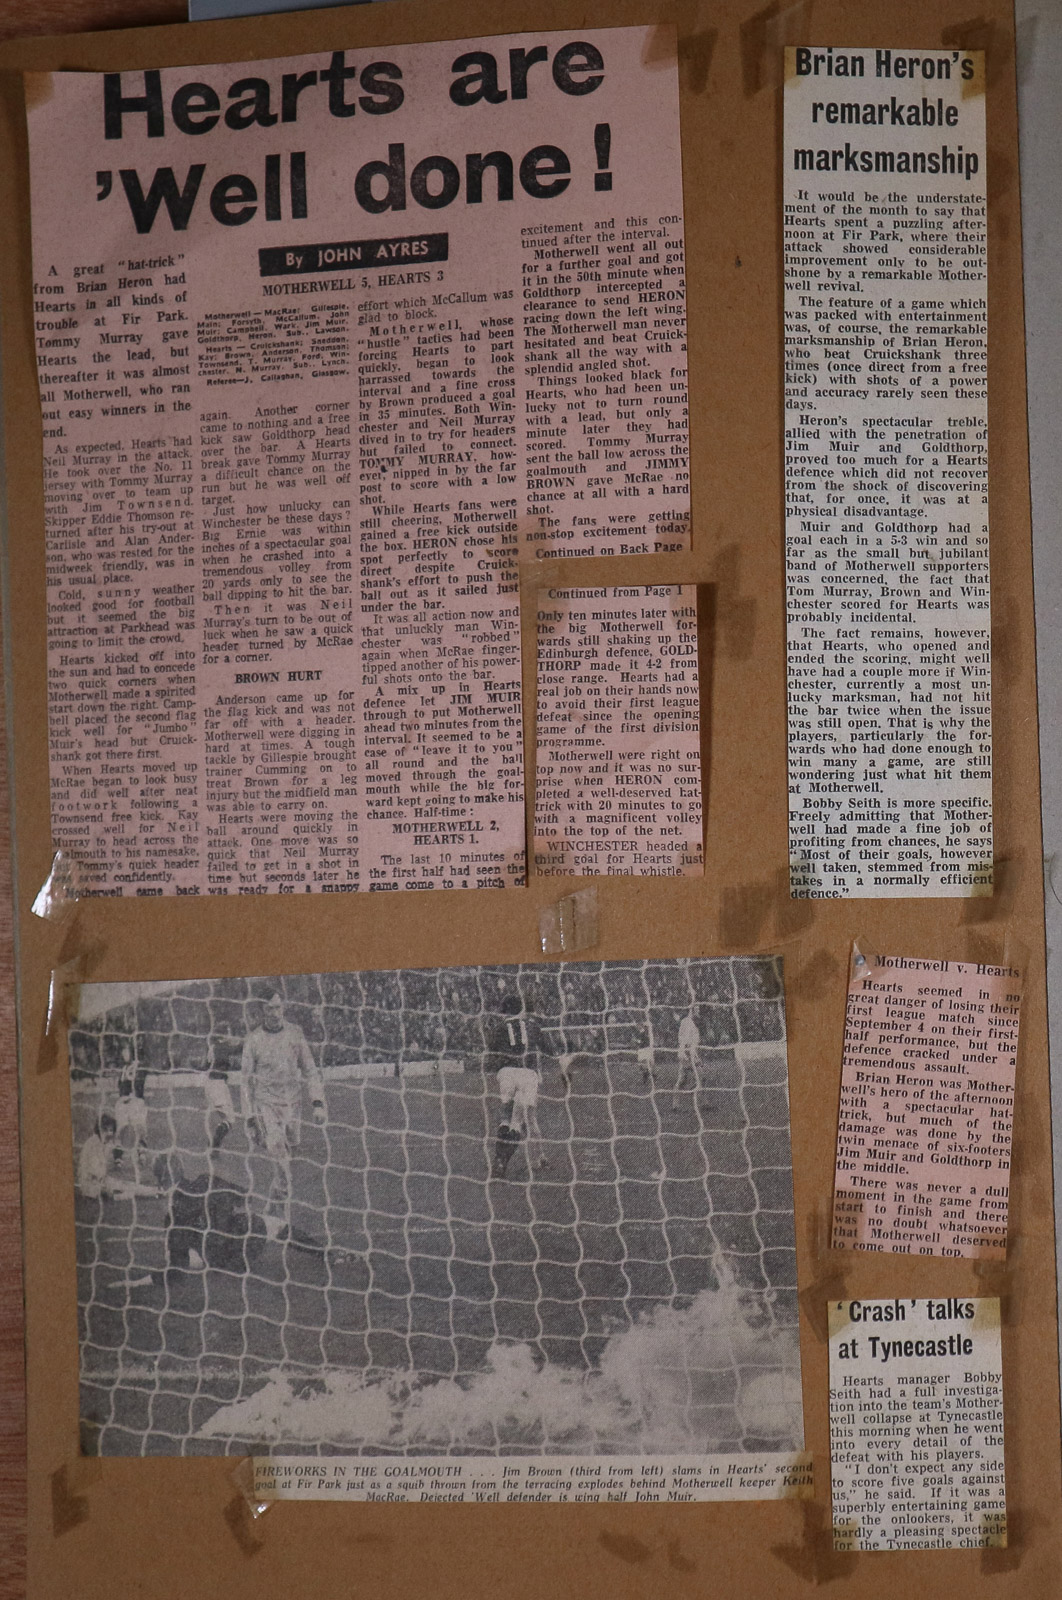 Hearts are
'Well done!
By JOHN AYRES
MOTHERWELL 5, HEARTS 3
A great "hat-trick"
from Brian Heron had
Hearts in all kinds of
trouble at Fir Park.
Tommy Murray gave
Hearts the lead, but
thereafter it was almost
all Motherwell, who ran
out easy winners in the
end.
As expected, Hearts had
Neil Murray in the attack.
He took over the No. 11
jersey with Tommy Murray
moving over to team up
with Jim Townsend.
Skipper Eddie Thomson re-
turned after his try-out at
Carlisle and Alan Ander-
son, who was rested for the
midweek friendly, was in
his usual place.
Cold, sunny weather
looked good for football
but it seemed the big
attraction at Parkhead was
going to limit the crowd.
Hearts kicked off into
the sun and had to concede
two quick corners when
Motherwell made a spirited
start down the right. Camp-
bell placed the second flag
kick well for "Jumbo"
Muir's head but Cruick-
shank got there first.
When Hearts moved up
McRae began to look busy
and did well after neat
footwork following a
Townsend free kick. Kay
crossed well for Neil
Murray to head across the
goalmouth to his namesake,
but Tommy's quick header
was saved confidently.
Motherwell came back
Motherwell—MacRae; Gillespie,
Main; Forsyth, McCallum, John
Muir; Campbell, Wark, Jim Muir,
Goldthorp, Heron. Sub., Lawson.
Hearts — Cruickshank; Sneddon,
Kay; Brown, Anderson, Thomson;
Townsend, T. Murray, Ford, Win-
chester, N. Murray. Sub., Lynch.
Referee—J. Callaghan, Glasgow.
again. Another corner
came to nothing and a free
kick saw Goldthorp head
over the bar. A Hearts
break gave Tommy Murray
a difficult chance on the
run but he was well off
target.
Just how unlucky can
Winchester be these days?
Big Ernie was within
inches of a spectacular goal
when he crashed into a
tremendous volley from
20 yards only to see the
ball dipping to hit the bar.
Then it was Neil
Murray's turn to be out of
luck when he saw a quick
header turned by McRae
for a corner.
BROWN HURT
Anderson came up for
the flag kick and was not
far off with a header.
Motherwell were digging in
hard at times. A tough
tackle by Gillespie brought
trainer Cumming on to
treat Brown for a leg
injury but the midfield man
was able to carry on.
Hearts were moving the
ball around quickly in
attack. One move was so
quick that Neil Murray
failed to get in a shot in
time but seconds later he
was ready for a snappy
effort which McCallum was
glad to block.
Motherwell, whose
"hustle" tactics had been
forcing Hearts to part
quickly, began to look
harrassed towards the
interval and a fine cross
by Brown produced a goal
in 35 minutes. Both Win-
chester and Neil Murray
dived in to try for headers
but failed to connect.
TOMMY MURRAY, how-
ever, nipped in by the far
post to score with a low
shot.
While Hearts fans were
still cheering, Motherwell
gained a free kick outside
the box. HERON chose his
spot perfectly to score
direct despite Cruick-
shank's effort to push the
ball out as it sailed just
under the bar.
It was all action now and
that unluckly man Win-
chester was "robbed"
again when McRae finger-
tipped another of his power-
ful shots onto the bar.
A mix up in Hearts
defence let JIM MUIR
through to put Motherwell
ahead two minutes from the
interval. It seemed to be a
case of "leave it to you"
all round and the ball
moved through the goal-
mouth while the big for-
ward kept going to make his
chance. Half-time:
MOTHERWELL 2,
HEARTS 1.
The last 10 minutes of
the first half had seen the
game come to a pitch of
excitement and this con-
tinued after the interval.
Motherwell went all out
for a further goal and got
it in the 50th minute when
Goldthorp intercepted a
clearance to send HERON
racing down the left wing.
The Motherwell man never
hesitated and beat Cruick-
shank all the way with a
splendid angled shot.
Things looked black for
Hearts, who had been un-
lucky not to turn round
with a lead, but only a
minute later they had
scored. Tommy Murray
sent the ball low across the
goalmouth and JIMMY
BROWN gave McRae no
chance at all with a hard
shot.
The fans were getting
non-stop excitement today.
Continued on Back Page
Continued from Page 1
Only ten minutes later with
the big Motherwell for-
wards still shaking up the
Edinburgh defence, GOLD-
THORP made it 4-2 from
close range. Hearts had a
real job on their hands now
to avoid their first league
defeat since the opening
game of the first division
programme.
Motherwell were right on
top now and it was no sur-
prise when HERON com-
pleted a well-deserved hat-
trick with 20 minutes to go
with a magnificent volley
into the top of the net.
WINCHESTER headed a
third goal for Hearts just
before the final whistle.
Brian Heron's
remarkable
marksmanship
It would be the understate-
ment of the month to say that
Hearts spent a puzzling after-
noon at Fir Park, where their
attack showed considerable
improvement only to be out-
shone by a remarkable Mother-
well revival.
The feature of a game which
was packed with entertainment
was, of course, the remarkable
marksmanship of Brian Heron,
who beat Cruickshank three
times (once direct from a free
kick) with shots of a power
and accuracy rarely seen these
days.
Heron's spectacular treble,
allied with the penetration of
Jim Muir and Goldthorp,
proved too much for a Hearts
defence which did not recover
from the shock of discovering
that, for once, it was at a
physical disadvantage.
Muir and Goldthorp had a
goal each in a 5-3 win and so
far as the small but jubilant
band of Motherwell supporters
was concerned, the fact that
Tom Murray, Brown and Win-
chester scored for Hearts was
probably incidental.
The fact remains, however,
that Hearts, who opened and
ended the scoring, might well
have had a couple more if Win-
chester, currently a most un-
lucky marksman, had not hit
the bar twice when the issue
was still open. That is why the
players, particularly the for-
wards who had done enough to
win many a game, are still
wondering just what hit them
at Motherwell.
Bobby Seith is more specific.
Freely admitting that Mother-
well had made a fine job of
profiting from chances, he says
"Most of their goals, however
well taken, stemmed from mis-
takes in a normally efficient
defence."
Motherwell v. Hearts
Hearts seemed in no
great danger of losing their
first league match since
September 4 on their first-
half performance, but the
defence cracked under a
tremendous assault.
Brian Heron was Mother-
well's hero of the afternoon
with a spectacular hat-
trick, but much of the
damage was done by the
twin menace of six-footers
Jim Muir and Goldthorp in
the middle.
There was never a dull
moment in the game from
start to finish and there
was no doubt whatsoever
that Motherwell deserved
to come out on top.
'Crash' talks
at Tynecastle
Hearts manager Bobby
Seith had a full investiga-
tion into the team's Mother-
well collapse at Tynecastle
this morning when he went
into every detail of the
defeat with his players.
"I don't expect any side
to score five goals against
us," he said. If it was a
superbly entertaining game
for the onlookers, it was
hardly a pleasing spectacle
for the Tynecastle chief.
11
FIREWORKS IN THE GOALMOUTH . . . Jim Brown (third from left) slams in Hearts' second
goal at Fir Park just as a squib thrown from the terracing explodes behind Motherwell keeper Keith
MacRae. Dejected 'Well defender is wing half John Muir.